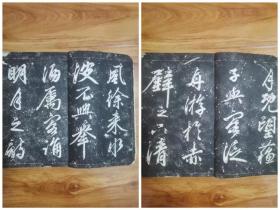 月既望蘇
子與客泛
舟游於赤
壁之下清
風徐来水
波不興舉
酒屬客誦
明月之詩